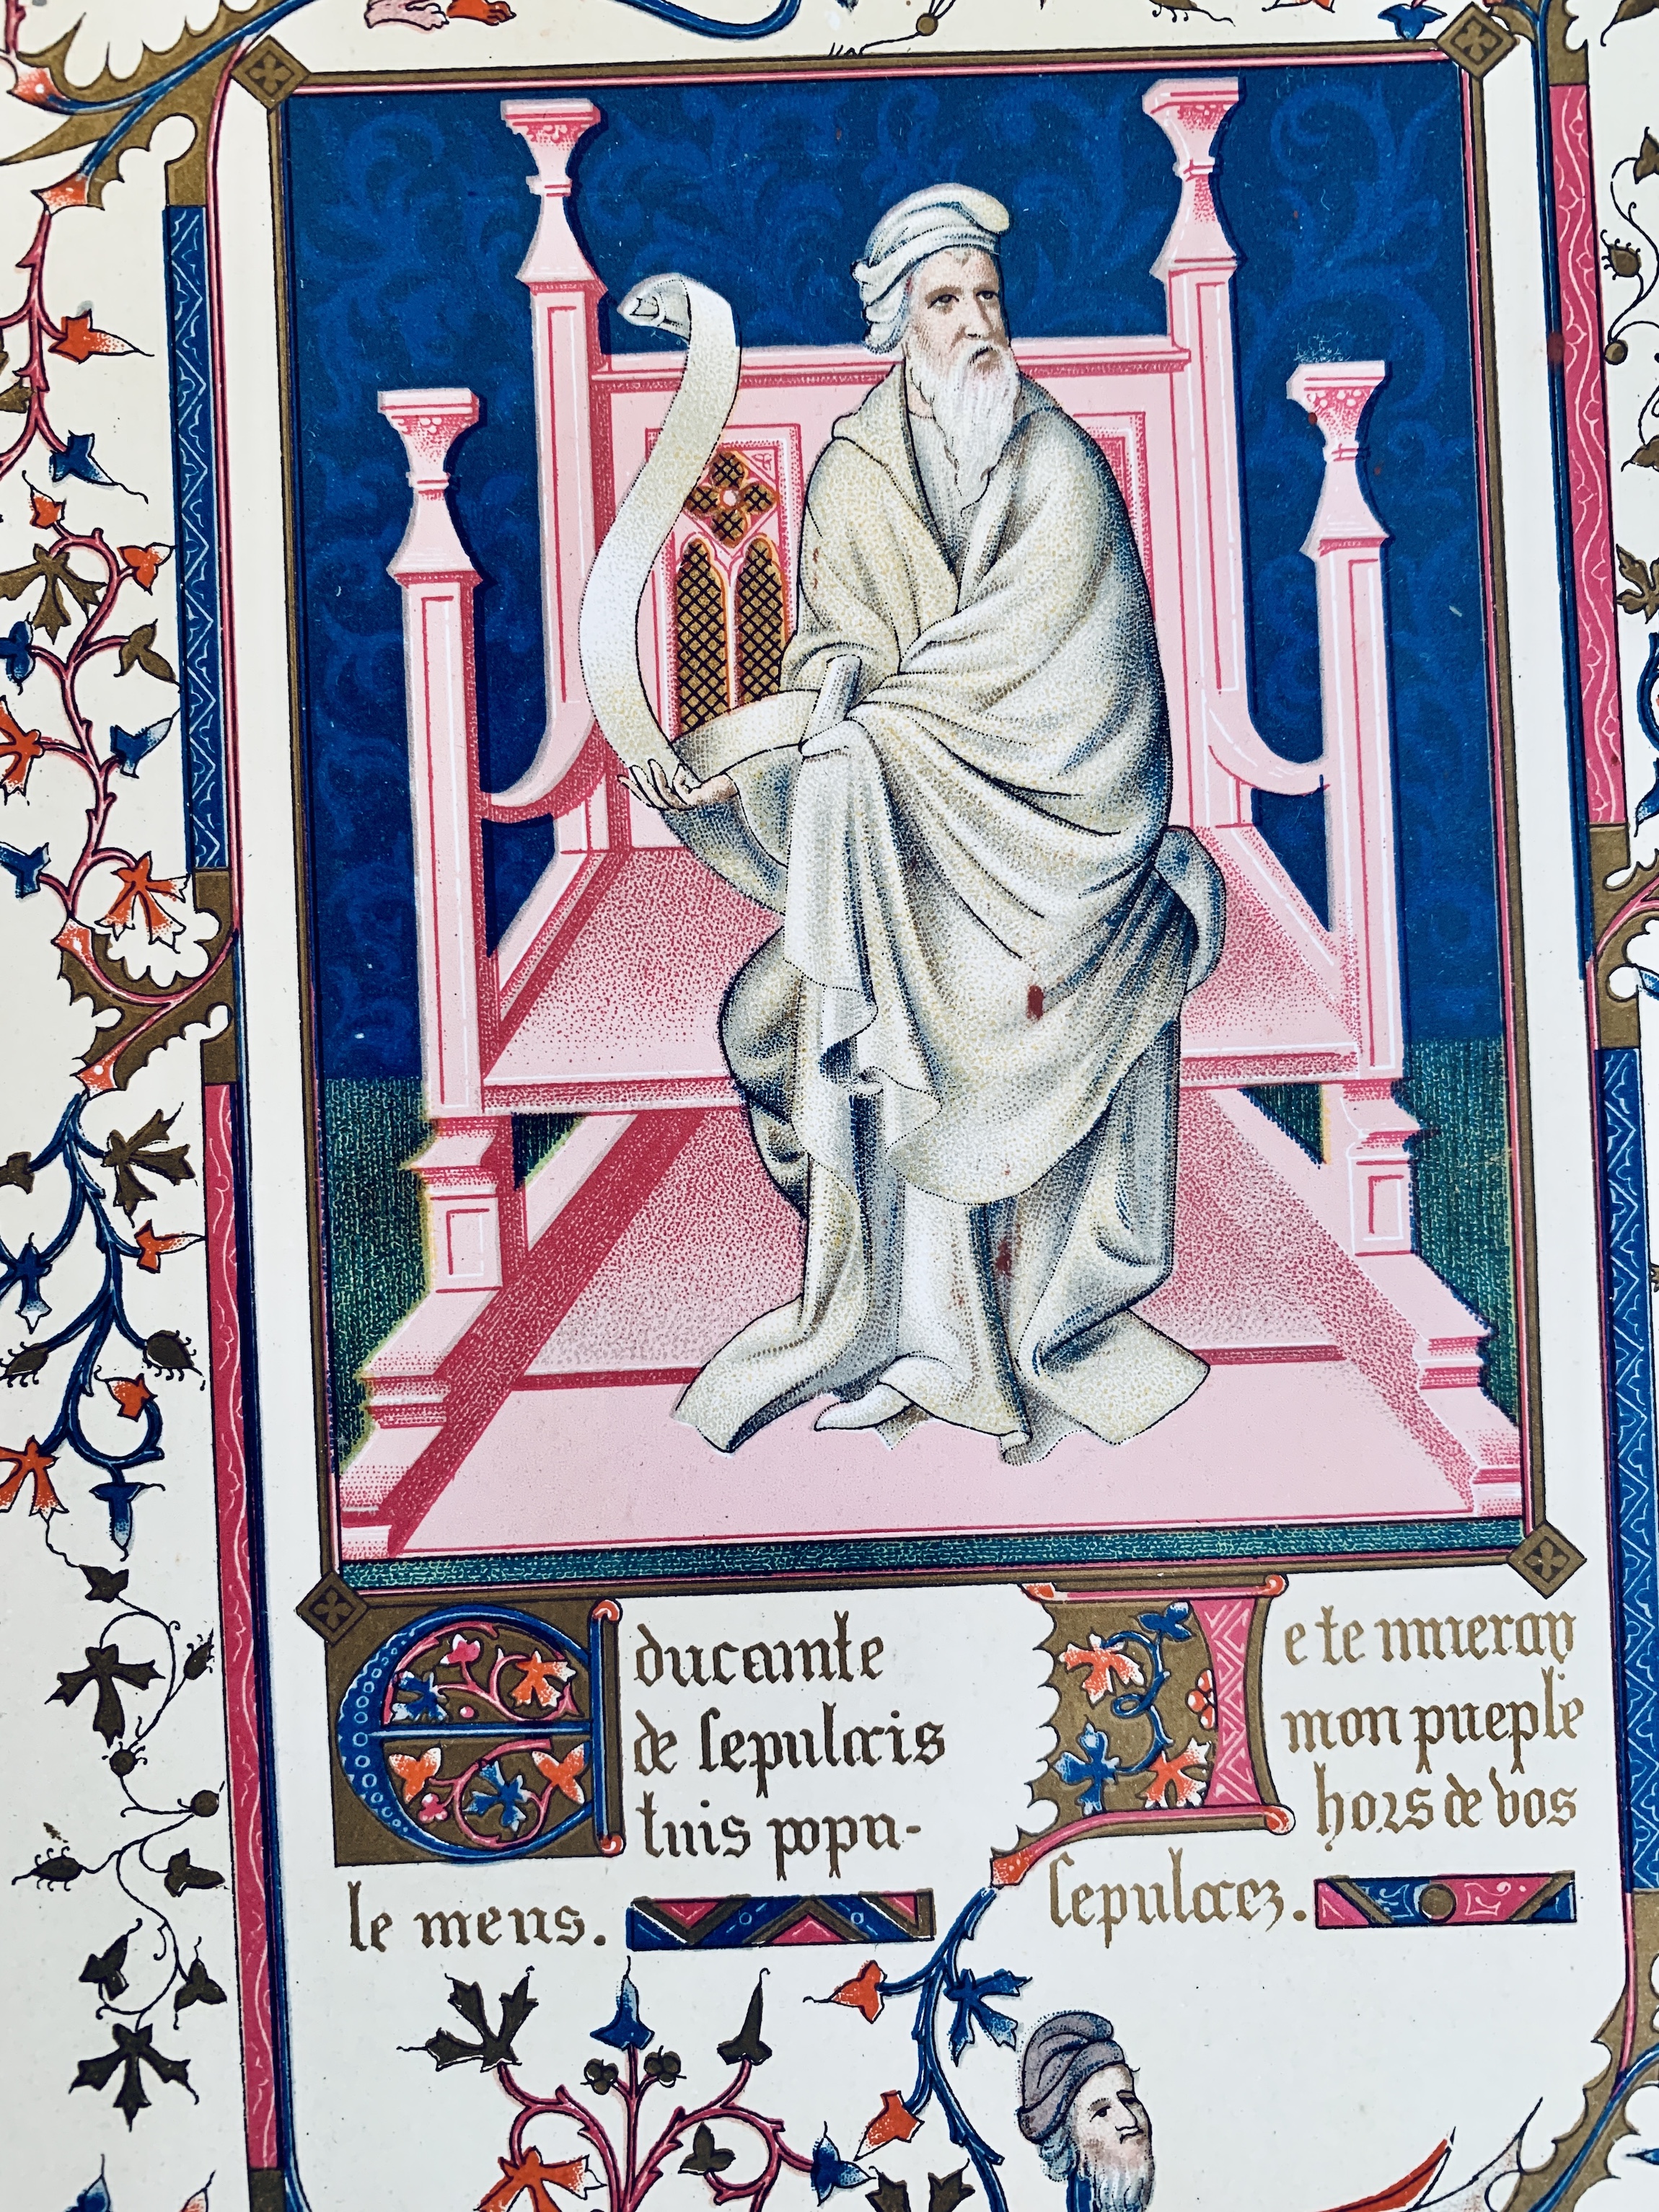 Educam te
de sepulcris
tuis popu-
le meus.
Ie te
mon pueple
hors de vos
sepulcrez.